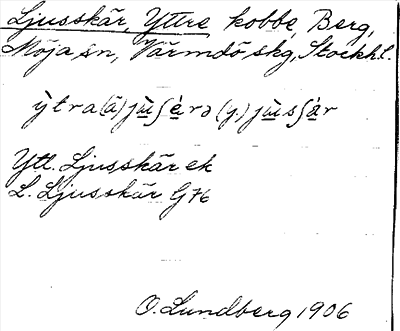 Ljusskär, Yttre kobbe, Berg,
Möja sn, Värmdö skg, Stockh.l.
ỳtra(ä)jùʃèrə (y.) jùsʃàr
Ytt. Ljusskär ek
L. Ljusskär G 76
O. Lundberg 1906